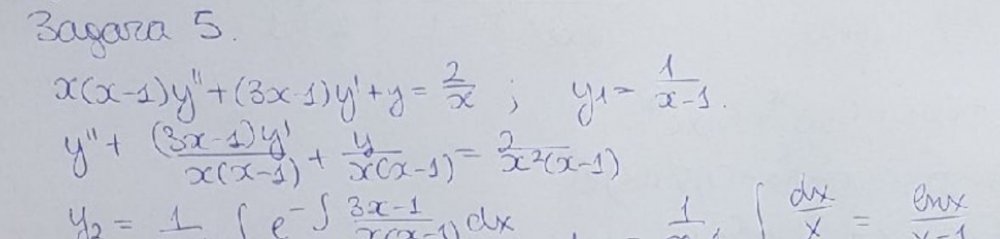 Задача 5.
x(x-1)y'' + (3x-1)y' + y = 2/x ; y1 = 1/(x-1).
y'' + (3x-1)y'/(x(x-1)) + y/(x(x-1)) = 2/(x²(x-1))
y2 = 1 ∫ e^-∫ (3x-1)/(x(x-1)) dx 1 ∫ dx/x = lnx/(x-1)